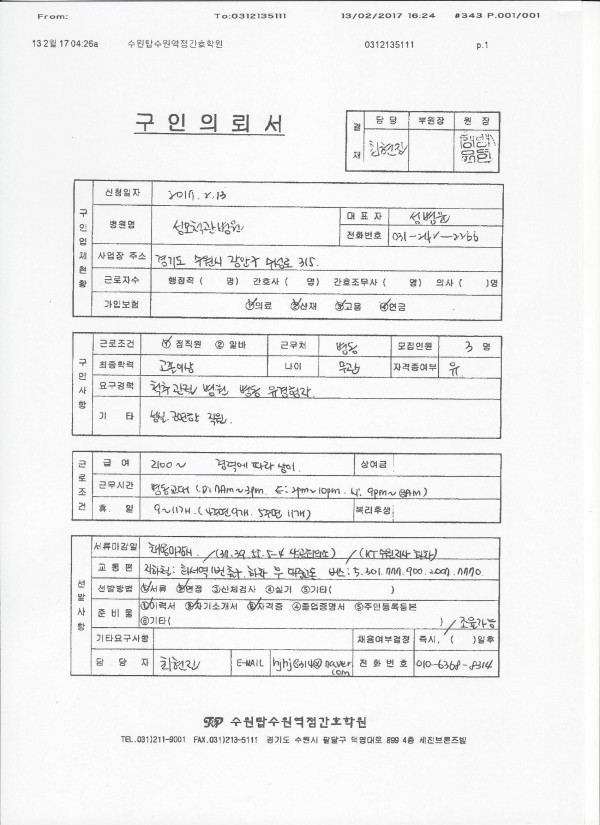 From: To:0312135111 13/02/2017 16:24 #343 P.001/001
13 2월 17 04:26a 수원탑수원역점간호학원 0312135111 p.1
구 인 의 뢰 서
결재 담 당 부원장 원 장
최현진
구인업체현황
신청일자 2017. 2. 13
병원명 성모척관병원 대 표 자
전화번호 031-242-2266
사업장 주소 경기도 수원시 장안구 수성로 315.
근로자수 행정직 ( 명) 간호사 ( 명) 간호조무사 ( 명) 의사 ( )명
가입보험 ①의료 ②산재 ③고용 ④연금
구인사항
근로조건 ① 정직원 ② 알바 근무처 병동 모집인원 3 명
최종학력 고졸이상 나이 무관 자격증여부 유
요구경력 척추관절 병원 병동 유경험자.
기 타 성실 직원.
근로조건
급 여 2100 ~ 경력에 따라 상이. 상여금
근무시간 병동교대 (D: 7AM~3pm. E: 2pm~10pm. N: 9pm~8AM)
휴 일 9~11개. (4주면 9개. 5주면 11개) 복리후생
선발사항
서류마감일 채용마감시. /
교 통 편 지하철: 화서역 1번출구 하차 후 버스: 5. 301. 777. 900. 2007. 7770.
선발방법 ①서류 ②면접 ③신체검사 ④실기 ⑤기타( )
준 비 물 ①이력서 ②자기소개서 ③자격증 ④졸업증명서 ⑤주민등록등본
⑥기타( ) / 조율가능
기타요구사항 채용여부결정 즉시, ( )일후
담 당 자 최현진 E-MAIL hjhj8314@naver.com 전 화 번 호 010-6368-8314
TOP 수원탑수원역점간호학원
TEL.031)211-9001 FAX.031)213-5111 경기도 수원시 팔달구 덕영대로 899 4층 세진브론즈빌